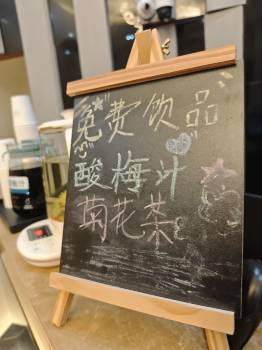 免费饮品
酸梅汁
菊花茶